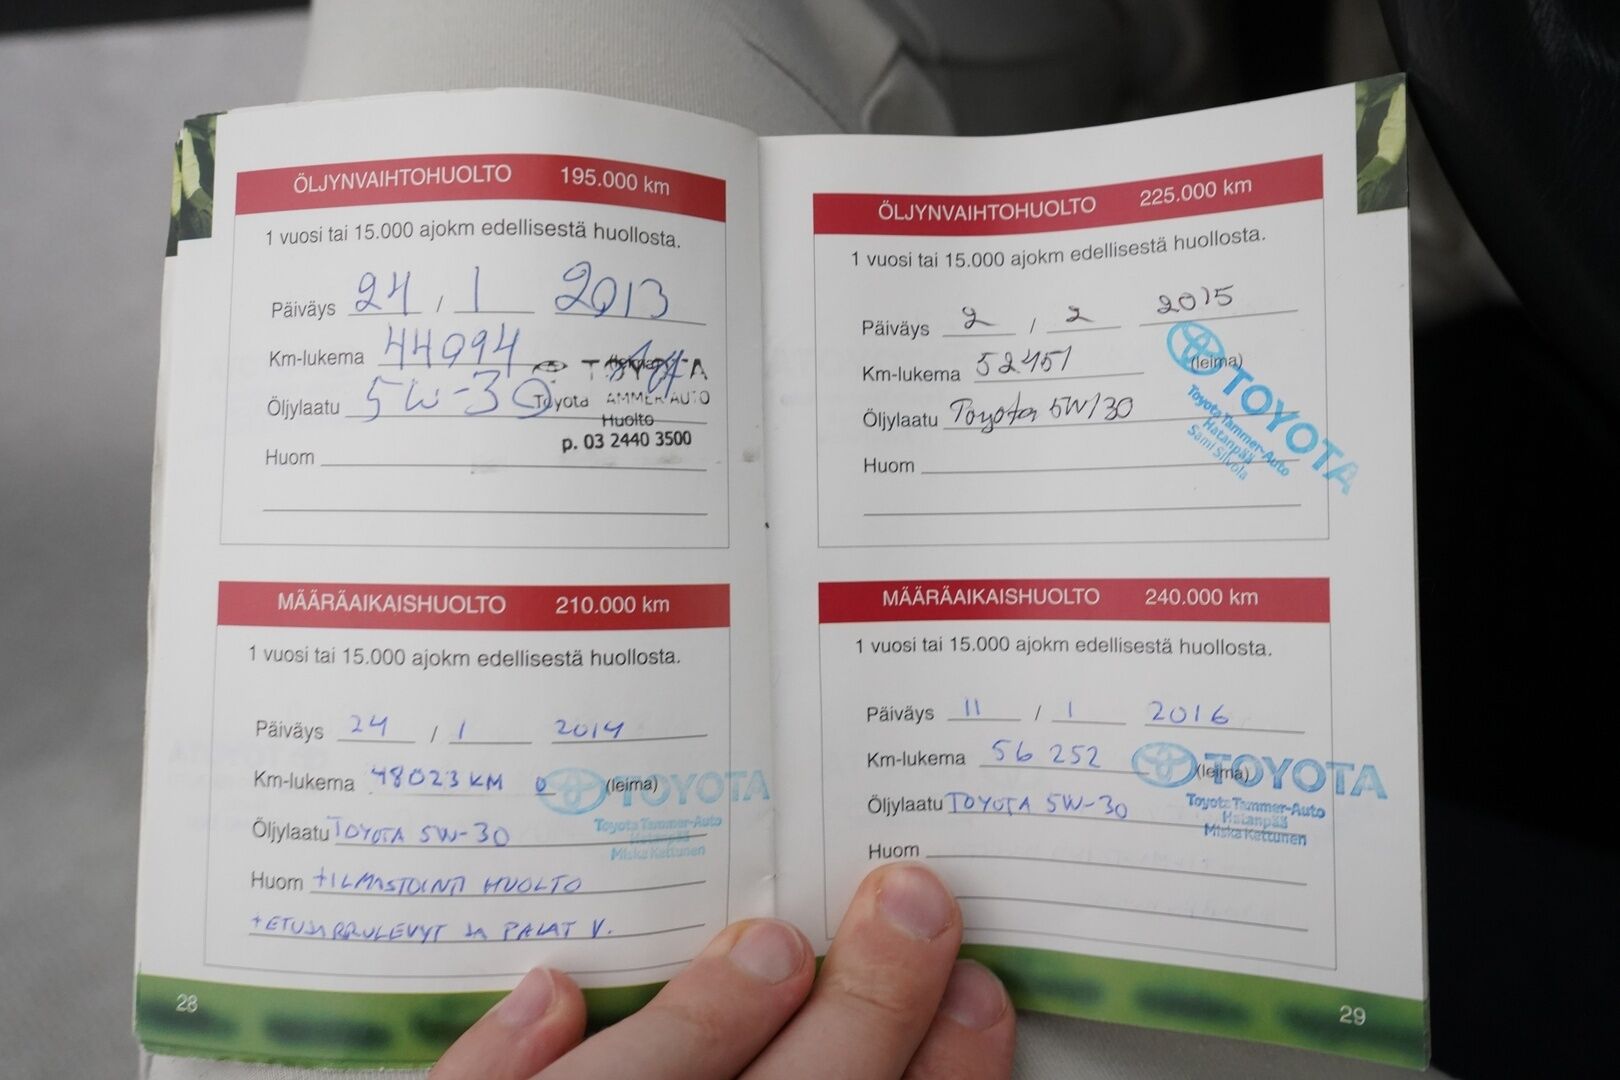 ÖLJYNVAIHTOHUOLTO 195.000 km
1 vuosi tai 15.000 ajokm edellisestä huollosta.
Päiväys 24 / 1 2013
Km-lukema 44094 (leima)
TOYOTA
Öljylaatu 5W-30
Toyota TAMMER-AUTO
Huolto
p. 03 2440 3500
Huom
MÄÄRÄAIKAISHUOLTO 210.000 km
1 vuosi tai 15.000 ajokm edellisestä huollosta.
Päiväys 24 / 1 2014
Km-lukema 48023 KM (leima)
TOYOTA
Öljylaatu TOYOTA 5W-30
Toyota Tammer-Auto
Hatanpää
Miska Kettunen
Huom +ILMASTOINTI HUOLTO
+ETUJARRULEVYT JA PALAT V.
28
ÖLJYNVAIHTOHUOLTO 225.000 km
1 vuosi tai 15.000 ajokm edellisestä huollosta.
Päiväys 2 / 2 2015
Km-lukema 52451 (leima)
TOYOTA
Öljylaatu Toyota 5W/30
Toyota Tammer-Auto
Hatanpää
Sami Silvola
Huom
MÄÄRÄAIKAISHUOLTO 240.000 km
1 vuosi tai 15.000 ajokm edellisestä huollosta.
Päiväys 11 / 1 2016
Km-lukema 56 252 (leima)
TOYOTA
Öljylaatu TOYOTA 5W-30
Toyota Tammer-Auto
Hatanpää
Miska Kettunen
Huom
29